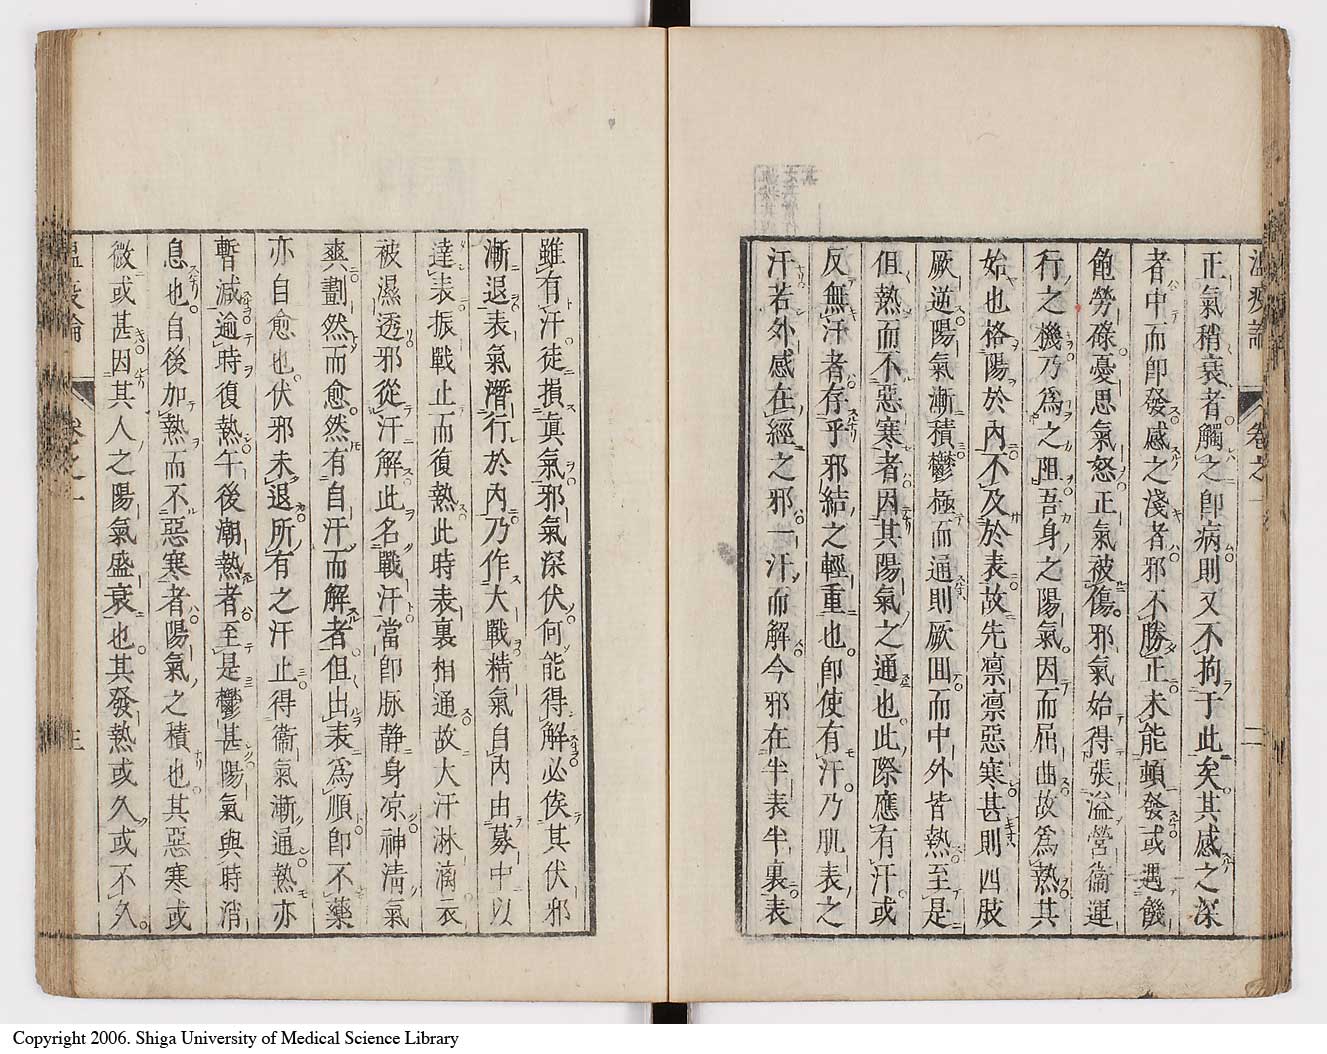 正氣稍衰者觸之即病則又不拘于此矣其感之深
者中而即發感之淺者邪不勝正未能頓發或遇饑
飽勞碌憂思氣怒正氣被傷邪氣始得張溢營衞運
行之機乃為之阻吾身之陽氣因而屈曲故為熱其
始也格陽於內不及於表故先凛凛惡寒甚則四肢
厥逆陽氣漸積鬱極而通則厥回而中外皆熱至是
但熱而不惡寒者因其陽氣之通也此際應有汗或
反無汗者存乎邪結之輕重也即使有汗乃肌表之
汗若外感在經之邪一汗而解今邪在半表半裏表
雖有汗徒損眞氣邪氣深伏何能得解必俟其伏邪
漸退表氣潛行於內乃作大戰精氣自內由募中以
達表振戰止而復熱此時表裏相通故大汗淋漓衣
被濕透邪從汗解此名戰汗當即脉静身凉神清氣
爽劃然而愈然有自汗而解者但出表為順即不藥
亦自愈也伏邪未退所有之汗止得衞氣漸通熱亦
暫減逾時復熱午後潮熱者至是鬱甚陽氣與時消
息也自後加熱而不惡寒者陽氣之積也其惡寒或
微或甚因其人之陽氣盛衰也其發熱或久或不久
溫疫論
卷之一
Copyright 2006. Shiga University of Medical Science Library